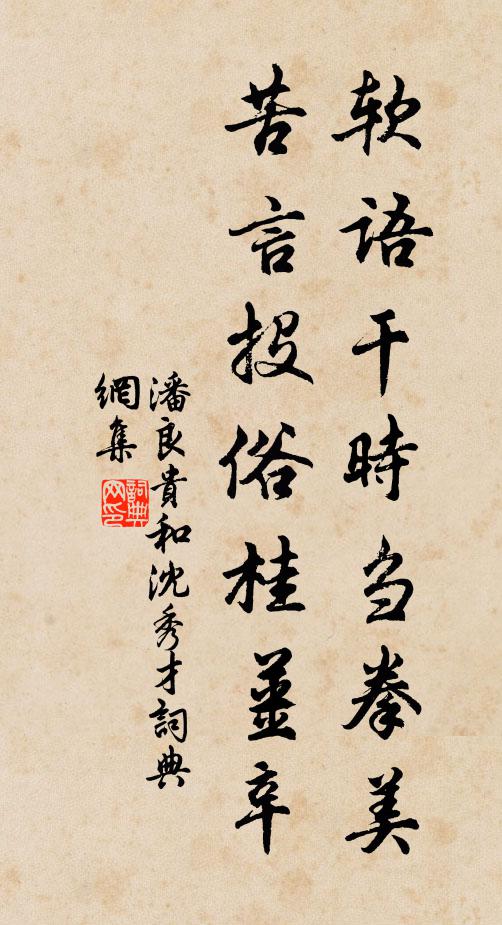 软语干時刍拳美
苦言投俗桂薑辛
潘良貴和沈秀才詞典
網集
詞典
网印